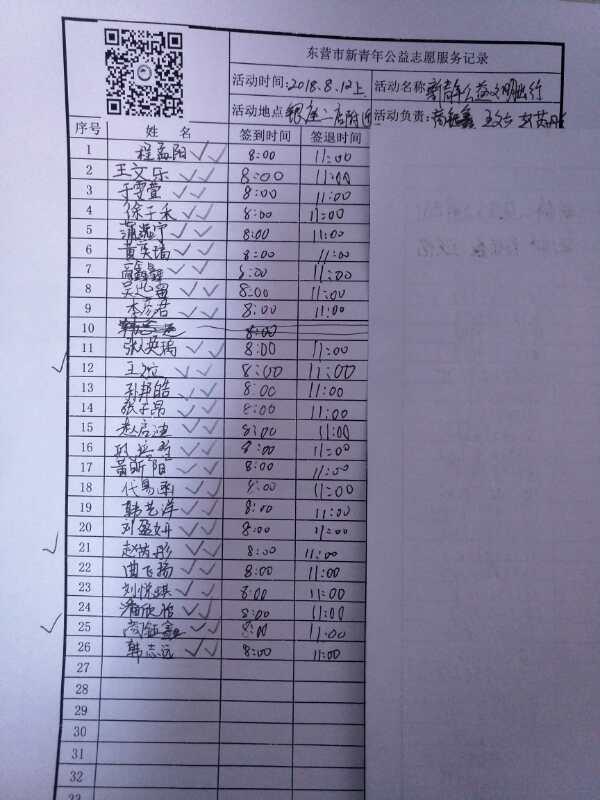 东营市新青年公益志愿服务记录
活动时间:2018.8.12上 活动名称:新青年公益文明出行
活动地点 银座二店附近 活动负责: 王文
序号 姓 名 签到时间 签退时间
1 程孟阳 8:00 11:00
2 王文乐 8:00 11:00
3 于雯萱 8:00 11:00
4 徐子永 8:00 11:00
5 8:00 11:00
6 黄奕瑞 8:00 11:00
7 8:00 11:00
8 8:00 11:00
9 李彦君 8:00 11:00
10 8:00
11 张人英瑀 8:00 11:00
12 王文 8:00 11:00
13 孙邦皓 8:00 11:00
14 张子昂 8:00 11:00
15 赵启迪 8:00 11:00
16 8:00 11:00
17 黄昕阳 8:00 11:00
18 代易函 8:00 11:00
19 韩艺洋 8:00 11:00
20 刘盈妍 8:00 11:00
21 赵芮彤 8:00 11:00
22 曲飞扬 8:00 11:00
23 刘悦琪 8:00 11:00
24 潘欣怡 8:00 11:00
25 8:00 11:00
26 韩志远 8:00 11:00
27
28
29
30
31
32
33